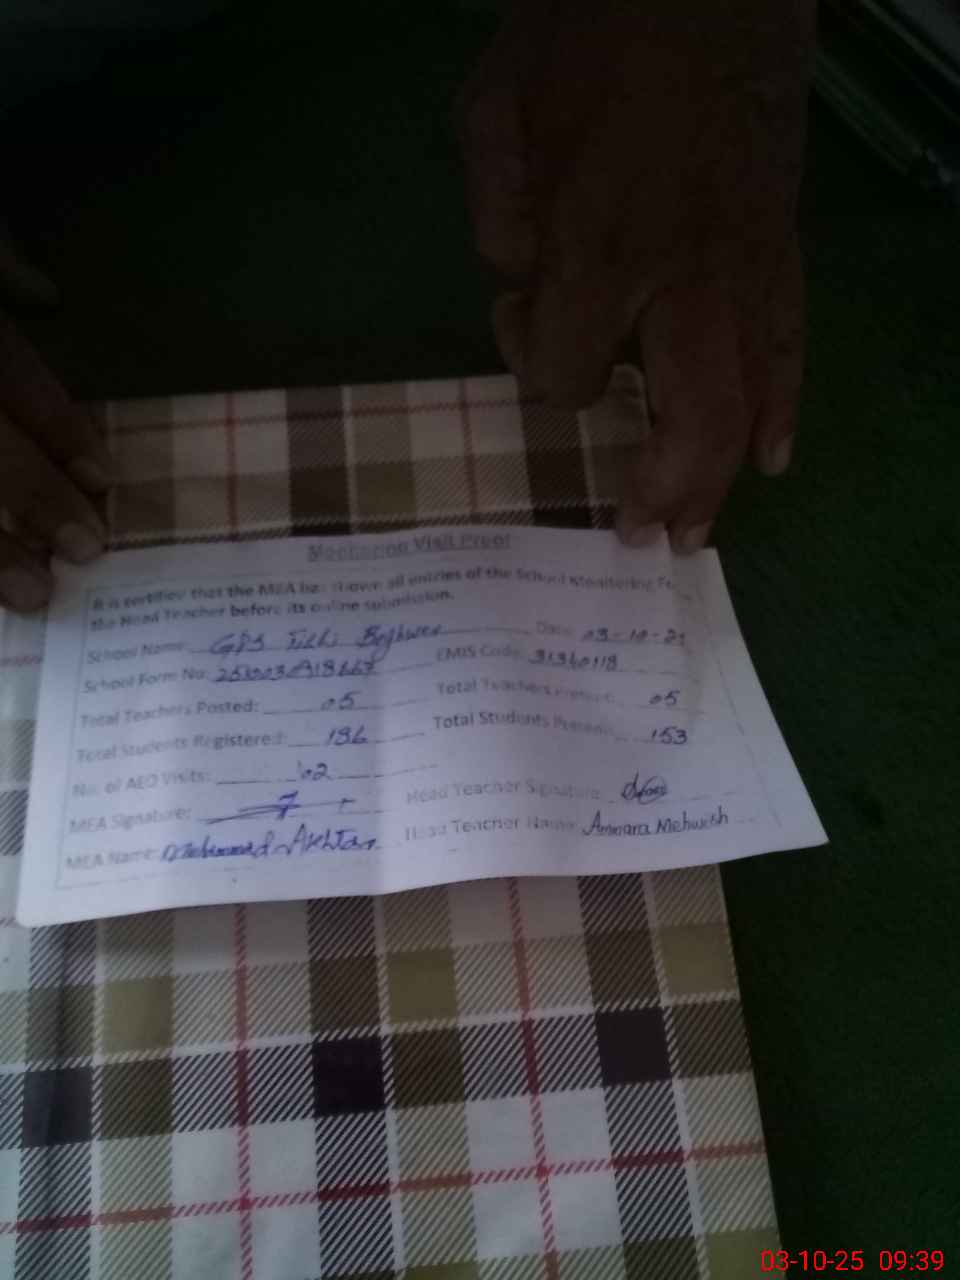 Visit Proof
It is certified that the MEA has shown all entries of the School Monitoring
the Head Teacher before its online submission.
School Name: GPS Date: 03-10-25
School Form No: EMIS Code: 31340118
Total Teachers Posted: 05 Total Teachers Present: 05
Total Students Registered: 186 Total Students Present: 153
No. of AEO Visits: 02
MEA Signature: Head Teacher Signature:
MEA Name: Muhammad Akhtar Head Teacher Name: Ammara Mehwish
03-10-25 09:39